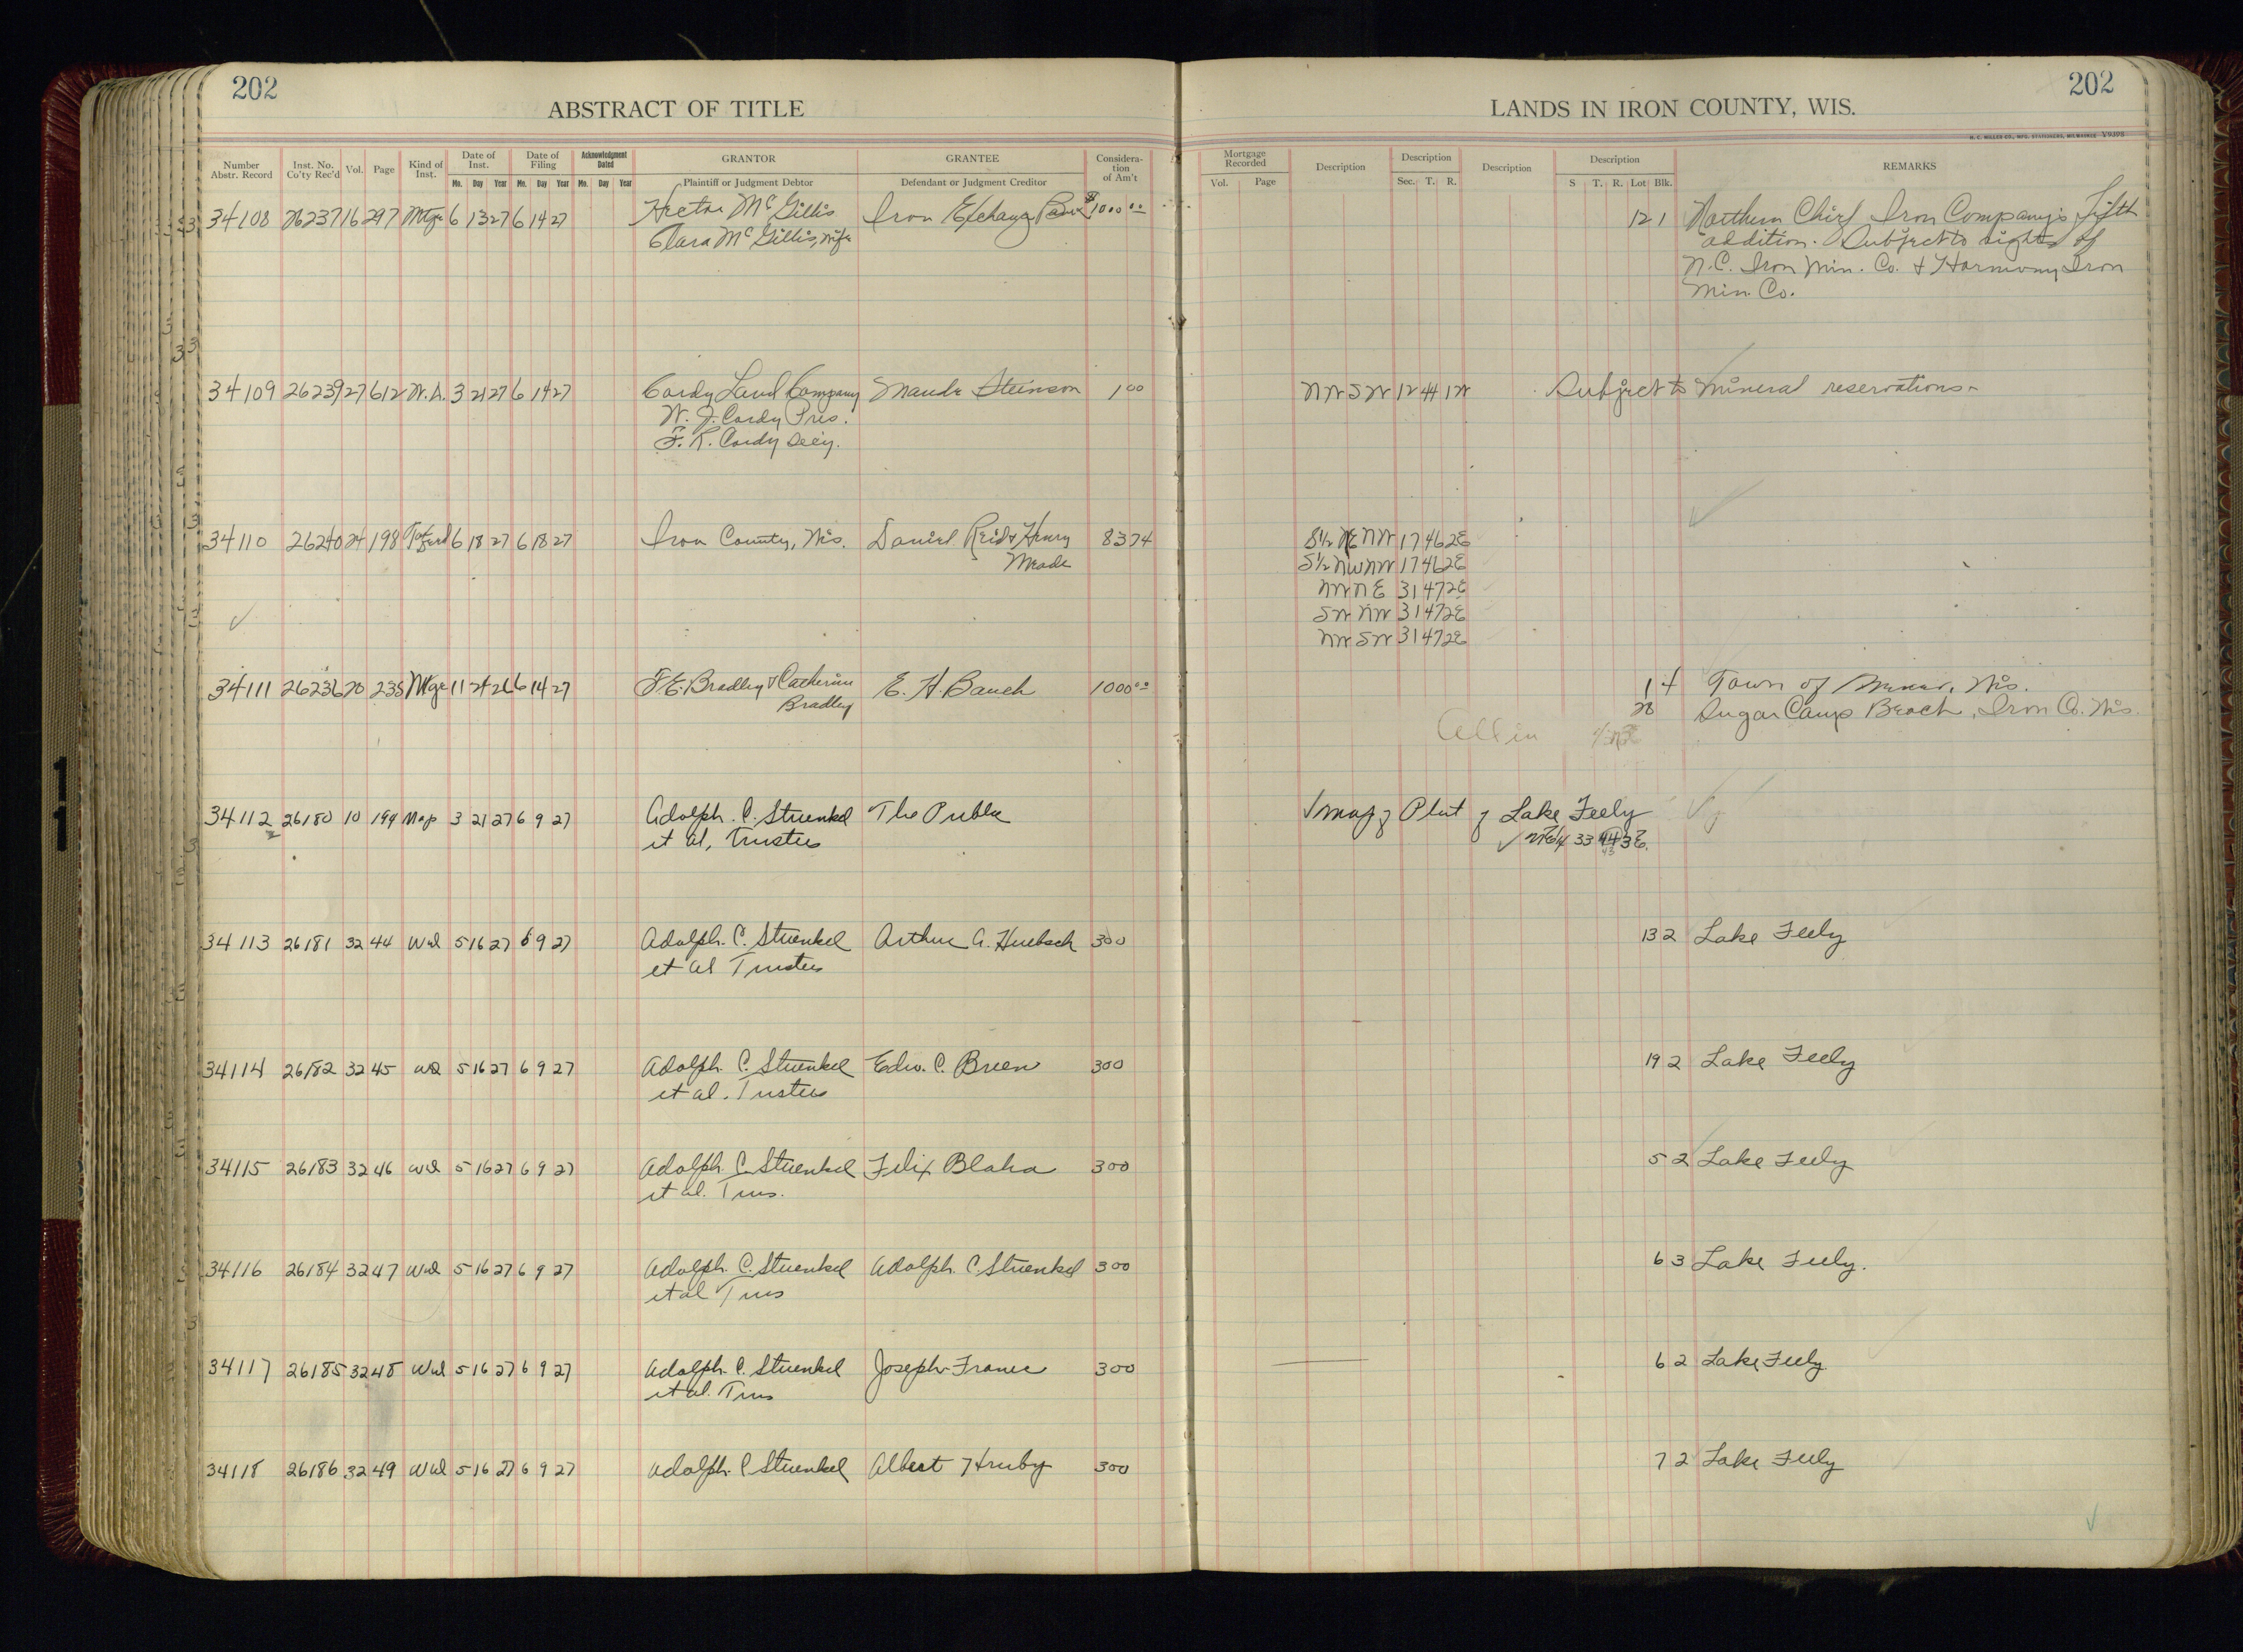 202
202
ABSTRACT OF TITLE
LANDS IN IRON COUNTY, WIS.
H. C. MILLER CO., MFG. STATIONERS, MILWAUKEE V9398
Number Abstr. Record Inst. No. Co'ty Rec'd Vol. Page Kind of Inst. Date of Inst. Date of Filing Acknowledgment Dated GRANTOR GRANTEE Consideration of Am't Mortgage Recorded Description Description Description Description REMARKS
Mo. Day Year Mo. Day Year Mo. Day Year Plaintiff or Judgment Debtor Defendant or Judgment Creditor Vol. Page Sec. T. R. S T. R. Lot Blk.
34108 26237 16 297 Mtge 6 13 27 6 14 27 Hector McGillis Iron Exchange Bank $1000 00 12 1 Northern Chief Iron Company's Fifth
Clara McGillis, wife addition. Subject to rights of
N.C. Iron Min. Co. & Harmony Iron
Min. Co.
34109 26239 27 612 W.D. 3 21 27 6 14 27 Cardy Land Company Maude Steinson 1 00 NW SW 12 44 1W Subject to mineral reservations
W. J. Cardy Pres.
F. R. Cardy Sec'y.
34110 26240 24 198 6 18 27 6 18 27 Iron County, Wis. Daniel Reid & Henry 8374 S½ NE NW 17 46 2E
Meade S½ NW NW 17 46 2E
NW NE 31 47 2E
SW NW 31 47 2E
NW SW 31 47 2E
34111 26236 20 235 Mtge 11 24 26 6 14 27 F.E. Bradley & Catherine E. H. Bauch 1000 00 1 4 Town of Mercer, Wis.
Bradley 28 Sugar Camp Beach, Iron Co. Wis.
All in
34112 26180 10 199 Map 3 21 27 6 9 27 Adolph. C. Stuenkel The Public Map of Plat of Lake Feely
et al, Trustees NE¼ 33 44 3E.
43
34113 26181 32 44 Wd 5 16 27 6 9 27 Adolph. C. Stuenkel Arthur A. Huebsch 300 13 2 Lake Feely
et al Trustees
34114 26182 32 45 Wd 5 16 27 6 9 27 Adolph. C. Stuenkel Edw. C. Breen 300 19 2 Lake Feely
et al. Trustees
34115 26183 32 46 Wd 5 16 27 6 9 27 Adolph. C. Stuenkel Felix Blaha 300 5 2 Lake Feely
et al. Trus.
34116 26184 32 47 Wd 5 16 27 6 9 27 Adolph. C. Stuenkel Adolph. C Stuenkel 300 6 3 Lake Feely.
et al Trus
34117 26185 32 48 Wd 5 16 27 6 9 27 Adolph. C. Stuenkel Joseph Franec 300 6 2 Lake Feely.
et al. Trus
34118 26186 32 49 Wd 5 16 27 6 9 27 Adolph. C Stuenkel Albert Hruby 300 7 2 Lake Feely